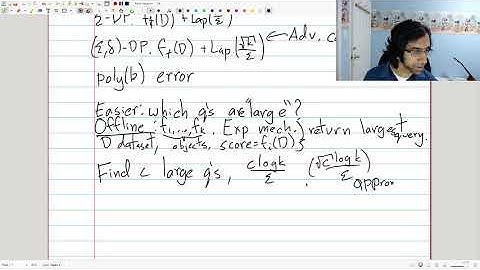 ε-DP: f_t(D) + Lap(k/ε)
(ε,δ)-DP. f_t(D) + Lap(√k/ε) ← Adv. c
poly(k) error
Easier: which q's are "large"?
Offline: f_1,...,f_k. Exp mech. } return largest query.
D dataset, objects, score=f_i(D) }
Find c large q's, c log k/ε , (√c log k/ε) approx